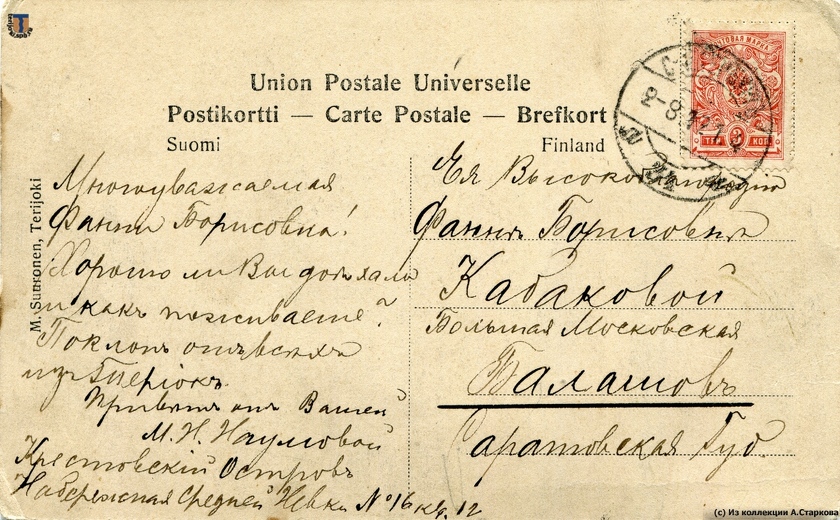 Union Postale Universelle
Postikortti — Carte Postale — Brefkort
Suomi
Finland
M. Suuronen, Terijoki
Многоуважаемая
Фанни Борисовна!
Хорошо ли Вы доѣхали
и какъ поживаете?
Поклонъ отъ всѣхъ
изъ Теріокъ.
Привѣтъ отъ Вашей
М. Н. Наумовой
Крестовскій Островъ
Набережная Средней Невки № 16 кв. 12
Ея Высокородию
Фаннѣ Борисовнѣ
Кабаковой
Большая Московская
Балашовъ
Саратовская Губ.
ПОЧТОВАЯ МАРКА
3
КОП
(с) Из коллекции А.Старкова